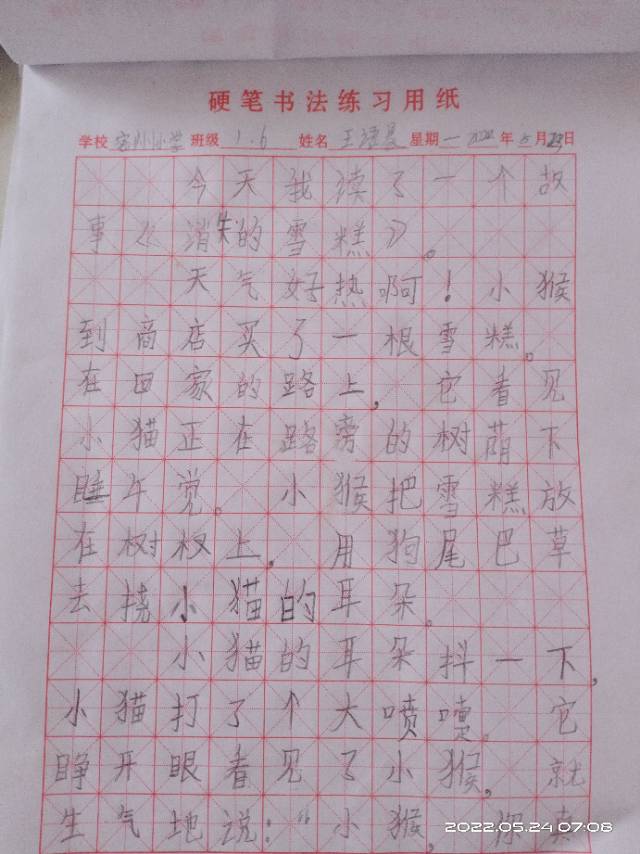 硬笔书法练习用纸
学校 小学 班级 1.6 姓名 王 星期一 2022年5月23日
今天我读了一个故
事《消失的雪糕》。
天气好热啊！小猴
到商店买了一根雪糕。
在回家的路上，它看见
小猫正在路旁的树荫下
睡午觉。小猴把雪糕放
在树杈上，用狗尾巴草
去挠小猫的耳朵。
小猫的耳朵抖一下，
小猫打了个大喷嚏。它
睁开眼看见了小猴，就
生气地说：“小猴，你真
2022.05.24 07:08